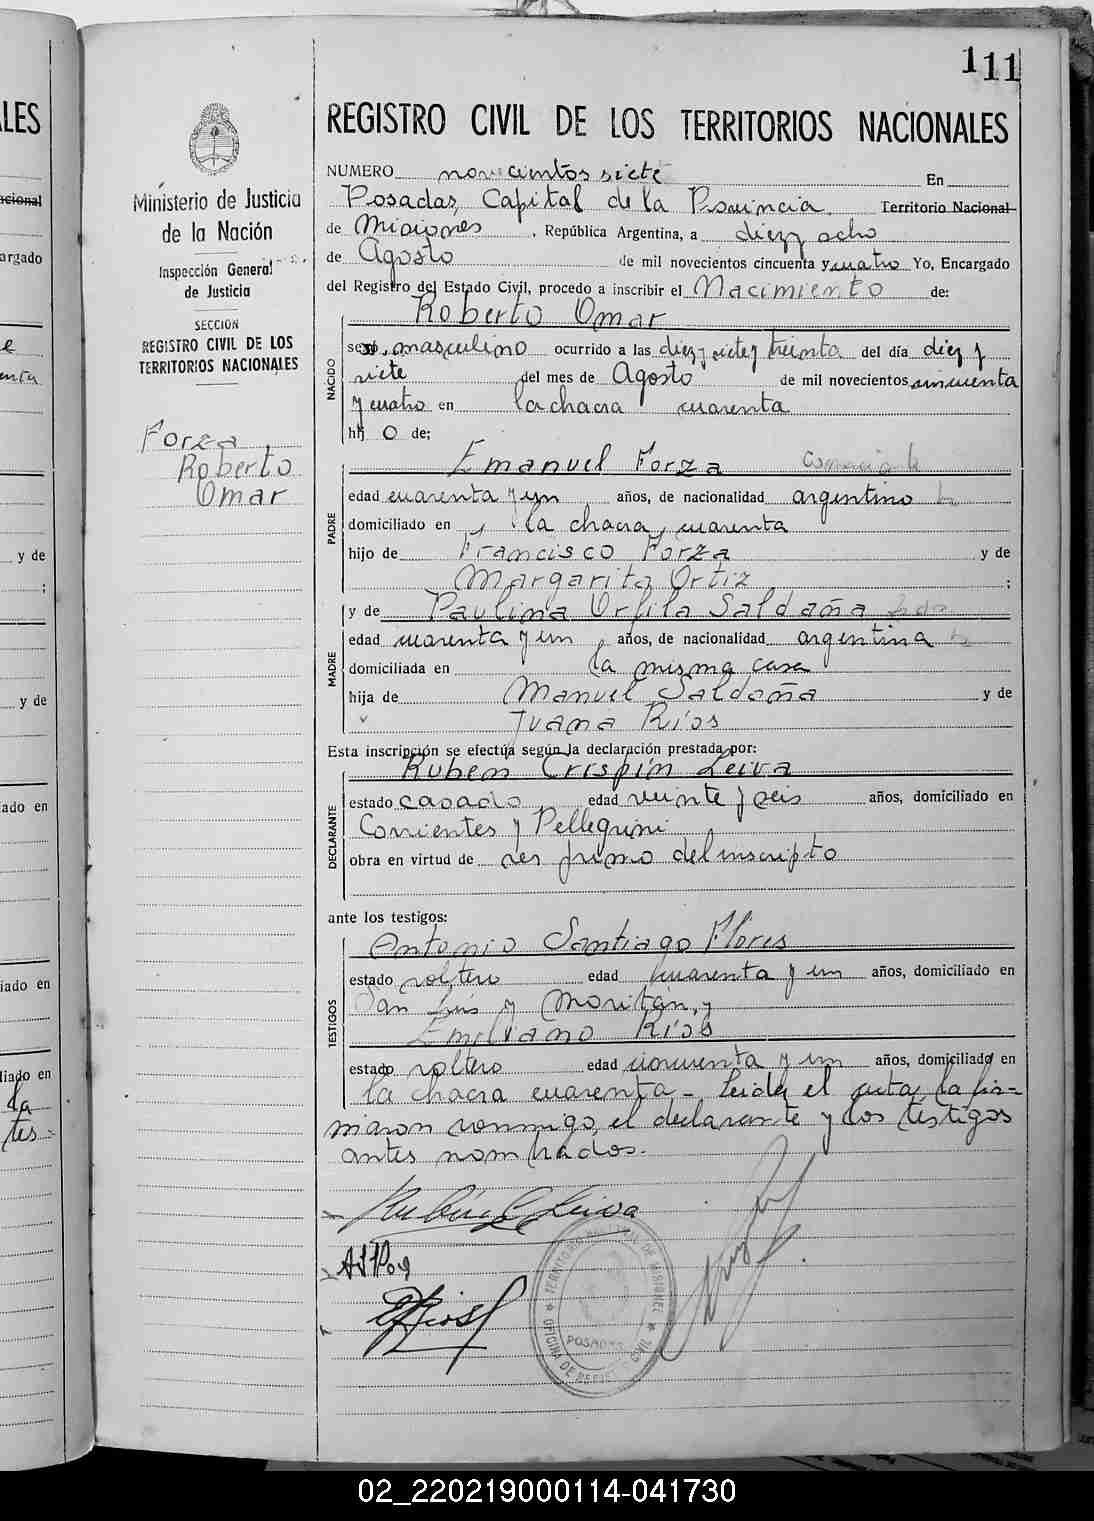 111
REGISTRO CIVIL DE LOS TERRITORIOS NACIONALES
NUMERO novecientos siete En
Posadas, Capital de la Provincia Territorio Nacional
de Misiones, República Argentina, a diez y ocho
de Agosto de mil novecientos cincuenta y cuatro Yo, Encargado
del Registro del Estado Civil, procedo a inscribir el Nacimiento de:
NACIDO
Roberto Omar
sexo masculino ocurrido a las diez y siete y treinta del día diez y
siete del mes de Agosto de mil novecientos cincuenta
y cuatro en la chacra cuarenta
hijo de;
PADRE
Emanuel Forza
edad cuarenta y un años, de nacionalidad argentino
domiciliado en la chacra, cuarenta
hijo de Francisco Forza y de
Margarita Ortiz ;
MADRE
y de Paulina Orfila Saldaña
edad cuarenta y un años, de nacionalidad argentina
domiciliada en la misma casa
hija de Manuel Saldaña y de
Juana Ríos
Esta inscripción se efectúa según la declaración prestada por:
DECLARANTE
Ruben Crispín Leiva
estado casado edad veinte y seis años, domiciliado en
Corrientes y Pellegrini
obra en virtud de ser primo del inscripto
ante los testigos:
TESTIGOS
Antonio Santiago Flores
estado soltero edad cuarenta y un años, domiciliado en
San Luis y Moritan, y
Emiliano Ríos
estado soltero edad cincuenta y un años, domiciliado en
la chacra cuarenta - Leida el acta, la fir-
maron conmigo, el declarante y los testigos
antes nombrados.
Ministerio de Justicia
de la Nación
Inspección General
de Justicia
SECCIÓN
REGISTRO CIVIL DE LOS
TERRITORIOS NACIONALES
Forza
Roberto
Omar
Rubén C Leiva
POSADAS
02_220219000114-041730